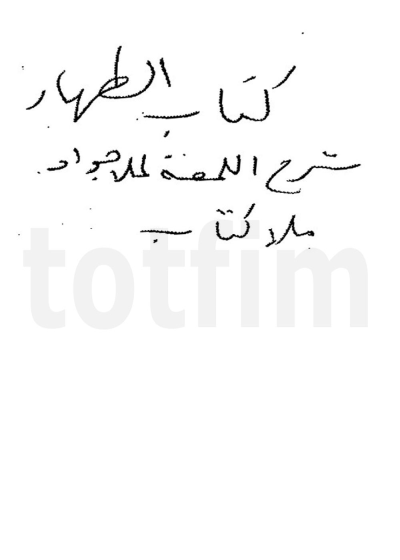 كتاب الطهار
شرح اللمعة لملا جواد
ملا كتاب
totfim